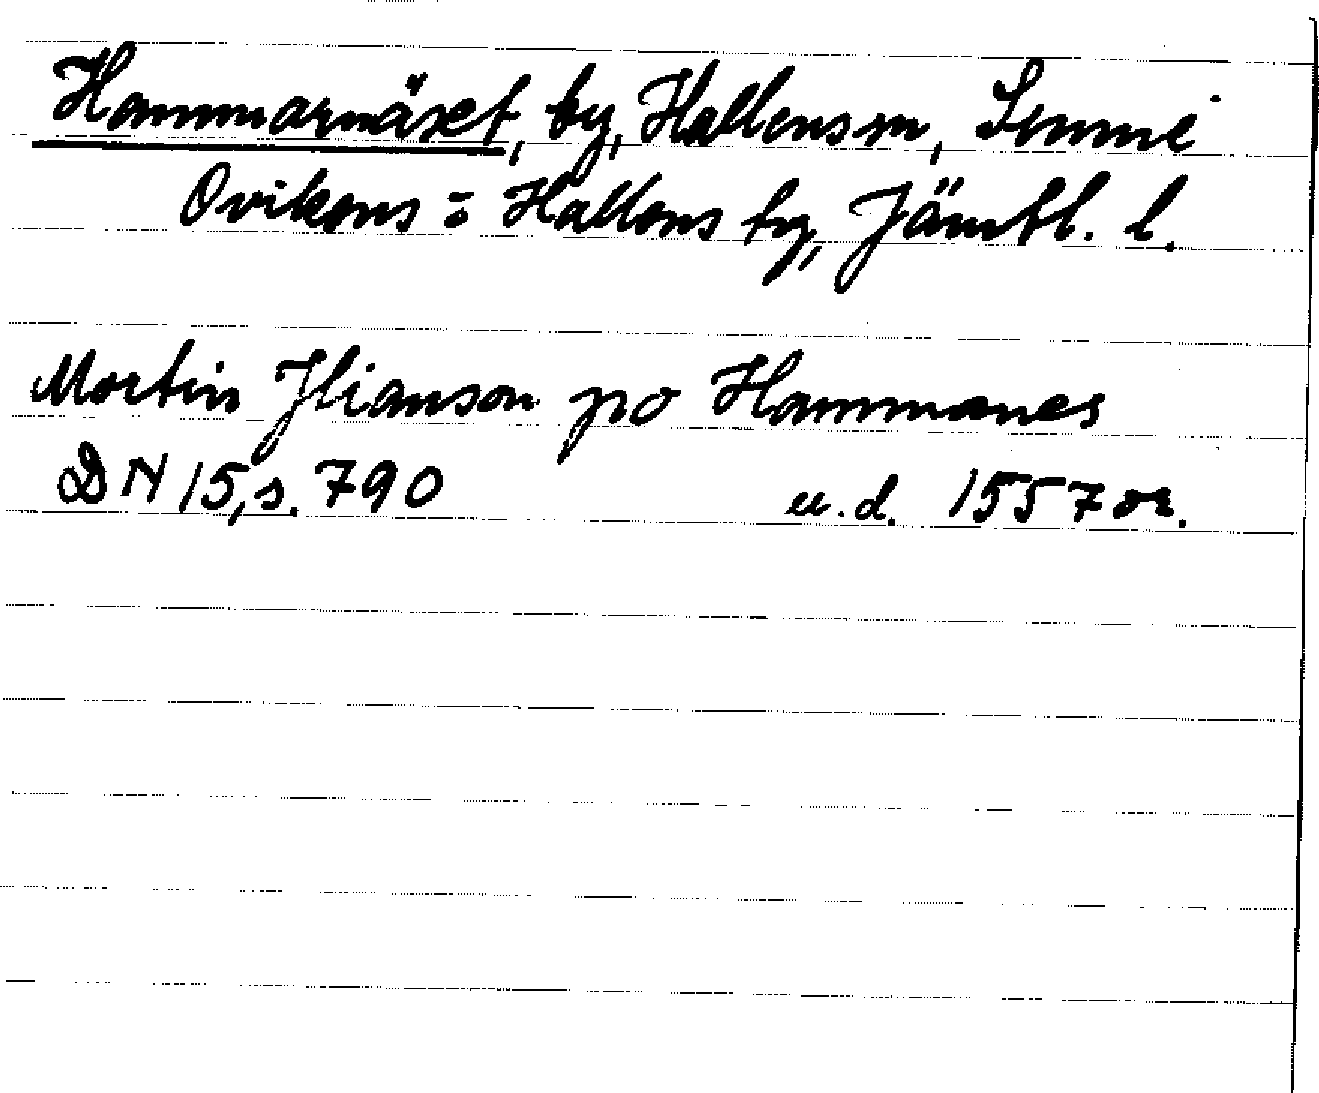 Hammarnäset, by, Hallens sn, Sunne
Ovikens = Hallens tg, Jämtl. l.
Mortin Jlianson po Hammanes
DN 15, s. 790 u.d. 1557 or.